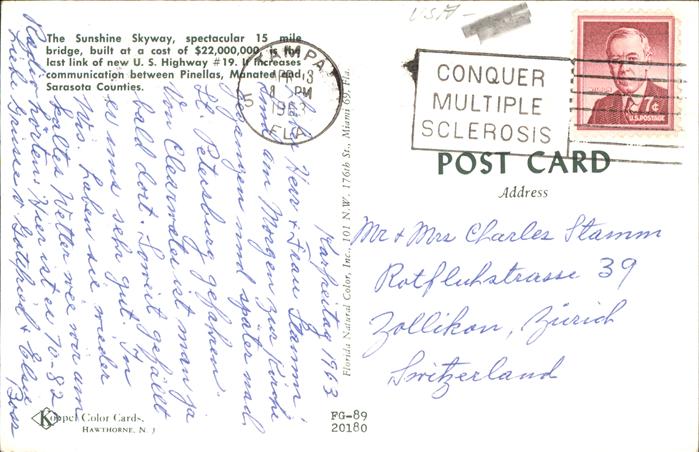 The Sunshine Skyway, spectacular 15 mile
bridge, built at a cost of $22,000,000 is the
last link of new U. S. Highway #19. It increases
communication between Pinellas, Manatee and
Sarasota Counties.
USA
TAMPA
APR 13
PM
FLA
CONQUER
MULTIPLE
SCLEROSIS
7¢
U.S. POSTAGE
POST CARD
Address
Mr & Mrs Charles Stamm
Rotfluhstrasse 39
Zollikon, Zürich
Switzerland
Florida Natural Color, Inc., 101 N.W. 176th St., Miami 69, Fla.
Karfreitag 1963
Herr & Frau Stamm!
Sind am Morgen zur Kirche
gegangen und später nach
St. Petersburg gefahren.
Von Clearwater ist man ja
bald dort. Soweit gefällt
er uns sehr gut. In
N.Y. haben sie wieder
kaltes Wetter wie wir am
Radio hörten. Hier ist es 70-82
Liebe Grüsse v Gottfried & Elsie
Boss
Koppel Color Cards,
HAWTHORNE, N. J
FG-89
20180